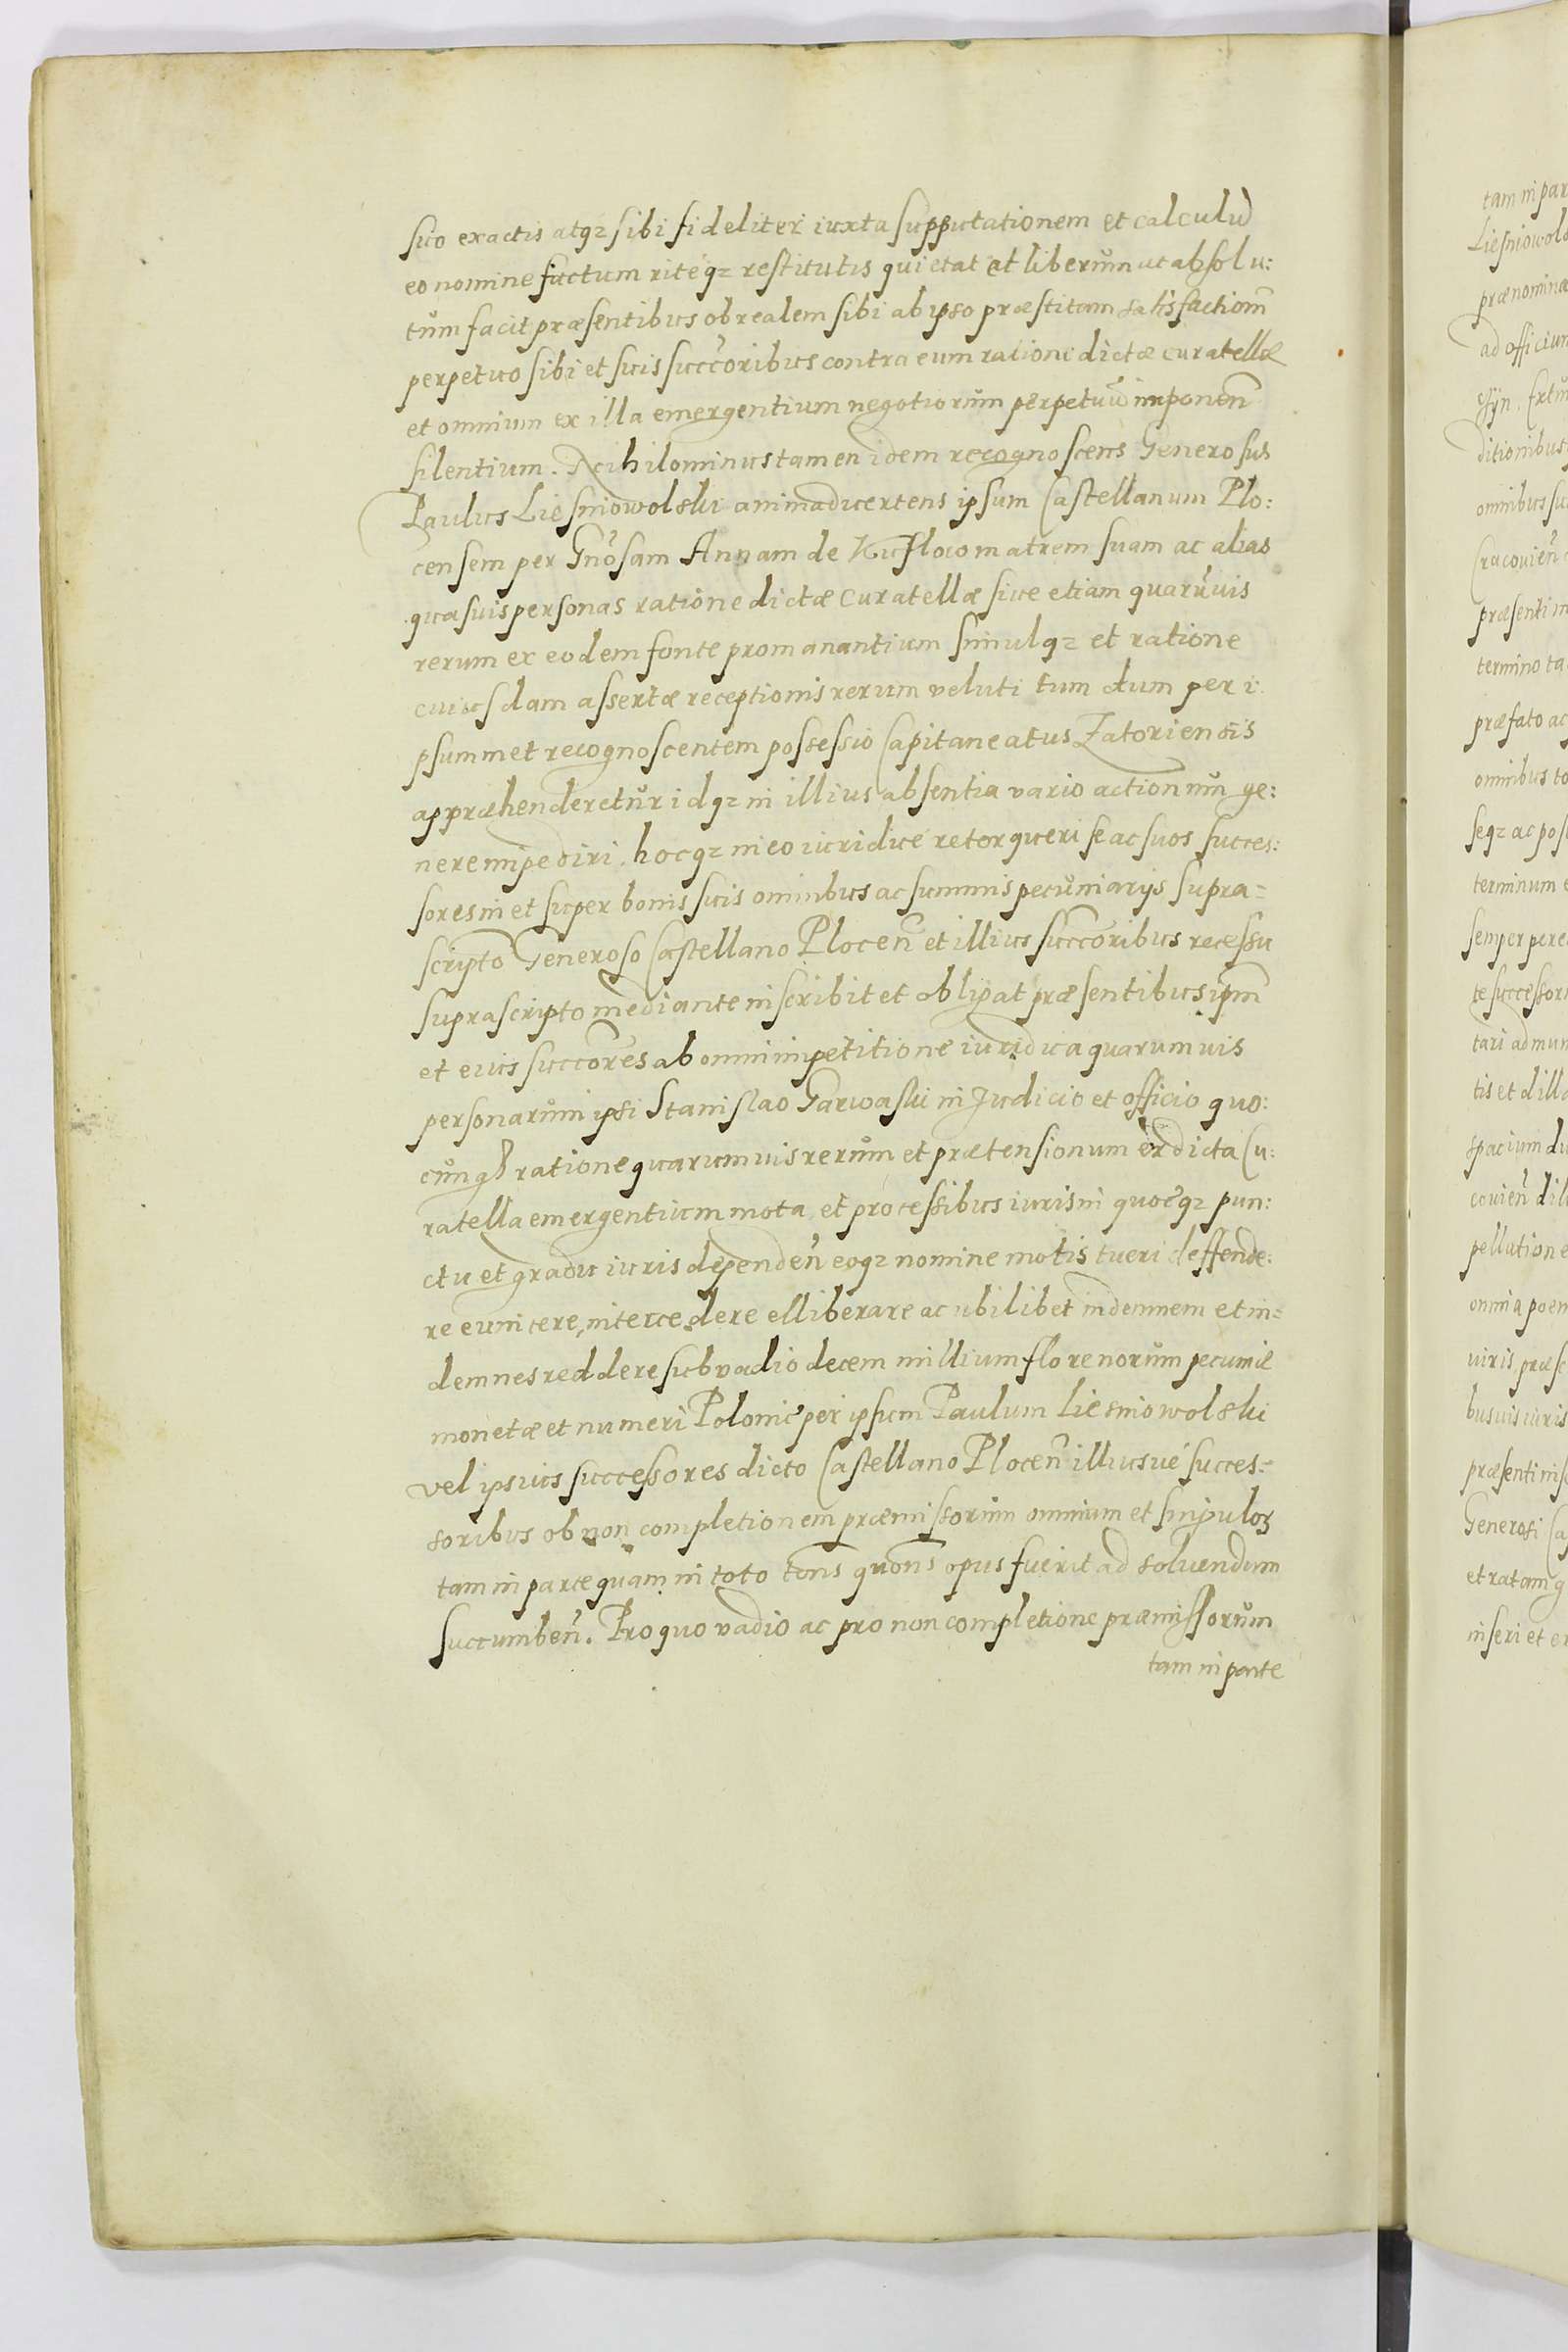 suo exactis atqz sibi fideliter iuxta supputationem et calculū
eo nomine factum ritéqz restitutis quietat et liberum ac absolu:
tum facit præsentibus ob realem sibi ab ipso præstitam satisfactiom̄
perpetuo sibi et suis succoribus contra eum ratione dictæ curatellæ
et omnium ex illa emergentium negotiorum perpetuū imponen̄
silentium. Nihilominus tamen idem recognoscens Generosus
Paulus Liesniowolski animaduertens ipsum Castellanum Plo:
censem per Gnōsam Annam de matrem suam ac alias
quasuis personas ratione dictæ curatellæ siue etiam quarūuis
rerum ex eodem fonte promanantium simulqz et ratione
cuiusdam assertæ receptionis rerum veluti tum dum per i
psummet recognoscentem possessio Capitaneatus Zatoriensis
appræhenderetur idqz in illius absentia vario actionum ge:
nere impediri. hocqz in eo iuridicé retorqueri se ac suos succes:
sores in et super bonis suis omnibus ac summis pecuniarijs supra=
scripto Generoso Castellano Plocen̄ et illius succoribus recessu
suprascripto mediante inscribit et obligat præsentibus ipm̄
et eius succores ab omni impetitione iuridica quarumuis
personarum ipsi Stanislao Garwaski in Judicio et officio quo:
cunqz ratione quarumuis rerum et prætensionum ex dicta Cu:
ratella emergentium mota et processibus iuris in quoeqz pun:
ctu et gradu iuris dependen̄ eoqz nomine motis tueri deffende:
re euincere, intercedere elliberare ac ubilibet indemnem et in=
demnes reddere sub vadio decem millium florenorum pecuniæ
monetæ et numeri Poloniē per ipsum Paulum Liesniowolski
vel ipsius successores dicto Castellano Plocen̄ illiusué succes:
soribus ob non completionem præmissorum omnium et singuloꝝ
tam in parte quam in toto tōns quōns opus fuerit ad soluendum
succumben̄. Pro quo vadio ac pro non completione præmissorum
tam in parte
tam in par
Liesniowols
prænomina
ad officium
ditionibus
omnibus su
Cracouien̄
præsenti in
termino ta
præfato ac
omnibus to
seqz ac pos
terminum e
semper pere
te successor
tari ad mun
tis et dilla
spacium du
couien̄ dil
pellatione
omnia poen
uiris præsc
busuis iuris
præsenti ins
Generosi Ca
et ratam g
inseri et er